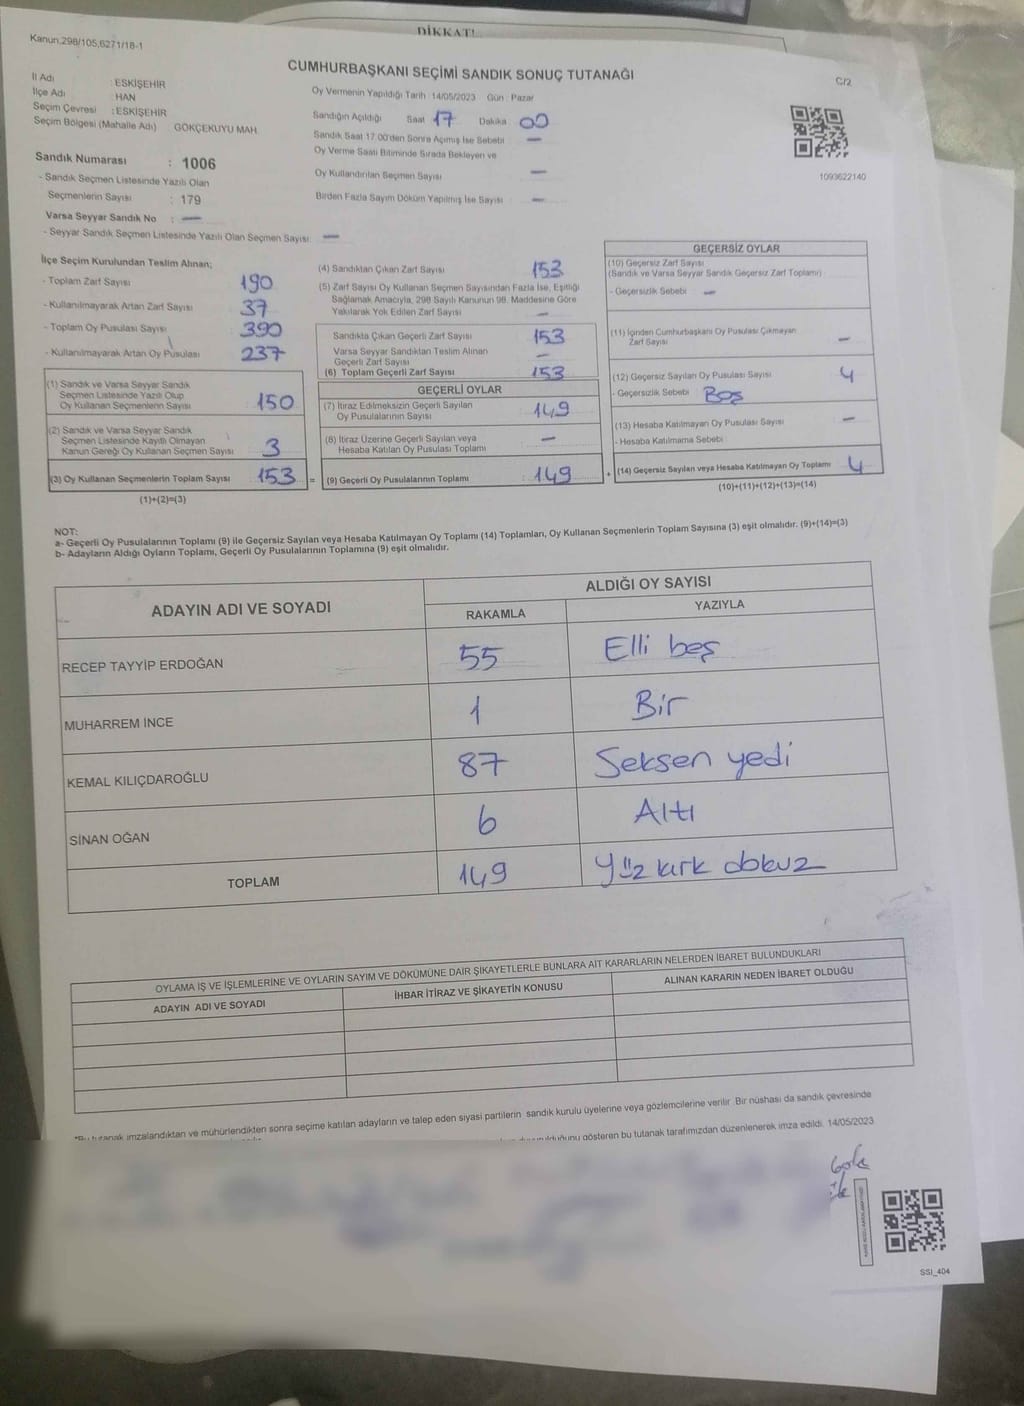 DİKKAT!
Kanun,298/105,6271/18-1
CUMHURBAŞKANI SEÇİMİ SANDIK SONUÇ TUTANAĞI
C/2
İl Adı : ESKİŞEHİR
İlçe Adı : HAN
Seçim Çevresi : ESKİŞEHİR
Seçim Bölgesi (Mahalle Adı) GÖKÇEKUYU MAH.
Oy Vermenin Yapıldığı Tarih : 14/05/2023 Gün : Pazar
Sandığın Açıldığı Saat 17 Dakika 00
Sandık Saat 17:00'den Sonra Açımış İse Sebebi —
Oy Verme Saati Bitiminde Sırada Bekleyen ve
Oy Kullandırılan Seçmen Sayısı —
Birden Fazla Sayım Döküm Yapılmış İse Sayısı —
1093622140
Sandık Numarası : 1006
- Sandık Seçmen Listesinde Yazılı Olan
Seçmenlerin Sayısı : 179
Varsa Seyyar Sandık No : —
- Seyyar Sandık Seçmen Listesinde Yazılı Olan Seçmen Sayısı —
İlçe Seçim Kurulundan Teslim Alınan;
- Toplam Zarf Sayısı 190
- Kullanılmayarak Artan Zarf Sayısı 37
- Toplam Oy Pusulası Sayısı 390
- Kullanılmayarak Artan Oy Pusulası 237
(1) Sandık ve Varsa Seyyar Sandık
Seçmen Listesinde Yazılı Olup
Oy Kullanan Seçmenlerin Sayısı 150
(2) Sandık ve Varsa Seyyar Sandık
Seçmen Listesinde Kayıtlı Olmayan
Kanun Gereği Oy Kullanan Seçmen Sayısı 3
(3) Oy Kullanan Seçmenlerin Toplam Sayısı 153
(1)+(2)=(3)
(4) Sandıktan Çıkan Zarf Sayısı 153
(5) Zarf Sayısı Oy Kullanan Seçmen Sayısından Fazla İse, Eşitliği
Sağlamak Amacıyla, 298 Sayılı Kanunun 98. Maddesine Göre
Yakılarak Yok Edilen Zarf Sayısı —
Sandıkta Çıkan Geçerli Zarf Sayısı 153
Varsa Seyyar Sandıktan Teslim Alınan
Geçerli Zarf Sayısı —
(6) Toplam Geçerli Zarf Sayısı 153
GEÇERLİ OYLAR
(7) İtiraz Edilmeksizin Geçerli Sayılan
Oy Pusulalarının Sayısı 149
(8) İtiraz Üzerine Geçerli Sayılan veya
Hesaba Katılan Oy Pusulası Toplamı —
= (9) Geçerli Oy Pusulalarının Toplamı : 149
GEÇERSİZ OYLAR
(10) Geçersiz Zarf Sayısı
(Sandık ve Varsa Seyyar Sandık Geçersiz Zarf Toplamı)
- Geçersizlik Sebebi —
(11) İçinden Cumhurbaşkanı Oy Pusulası Çıkmayan
Zarf Sayısı —
(12) Geçersiz Sayılan Oy Pusulası Sayısı 4
- Geçersizlik Sebebi Boş
(13) Hesaba Katılmayan Oy Pusulası Sayısı —
- Hesaba Katılmama Sebebi
+ (14) Geçersiz Sayılan veya Hesaba Katılmayan Oy Toplamı 4
(10)+(11)+(12)+(13)=(14)
NOT:
a- Geçerli Oy Pusulalarının Toplamı (9) ile Geçersiz Sayılan veya Hesaba Katılmayan Oy Toplamı (14) Toplamları, Oy Kullanan Seçmenlerin Toplam Sayısına (3) eşit olmalıdır. (9)+(14)=(3)
b- Adayların Aldığı Oyların Toplamı, Geçerli Oy Pusulalarının Toplamına (9) eşit olmalıdır.
ADAYIN ADI VE SOYADI
ALDIĞI OY SAYISI
RAKAMLA YAZIYLA
RECEP TAYYİP ERDOĞAN 55 Elli beş
MUHARREM İNCE 1 Bir
KEMAL KILIÇDAROĞLU 87 Seksen yedi
SİNAN OĞAN 6 Altı
TOPLAM 149 Yüz kırk dokuz
OYLAMA İŞ VE İŞLEMLERİNE VE OYLARIN SAYIM VE DÖKÜMÜNE DAİR ŞİKAYETLERLE BUNLARA AİT KARARLARIN NELERDEN İBARET BULUNDUKLARI
ADAYIN ADI VE SOYADI İHBAR İTİRAZ VE ŞİKAYETİN KONUSU ALINAN KARARIN NEDEN İBARET OLDUĞU
*Bu tutanak imzalandıktan ve mühürlendikten sonra seçime katılan adayların ve talep eden siyasi partilerin sandık kurulu üyelerine veya gözlemcilerine verilir. Bir nüshası da sandık çevresinde
gösteren bu tutanak tarafımızdan düzenlenerek imza edildi. 14/05/2023
SSI_404